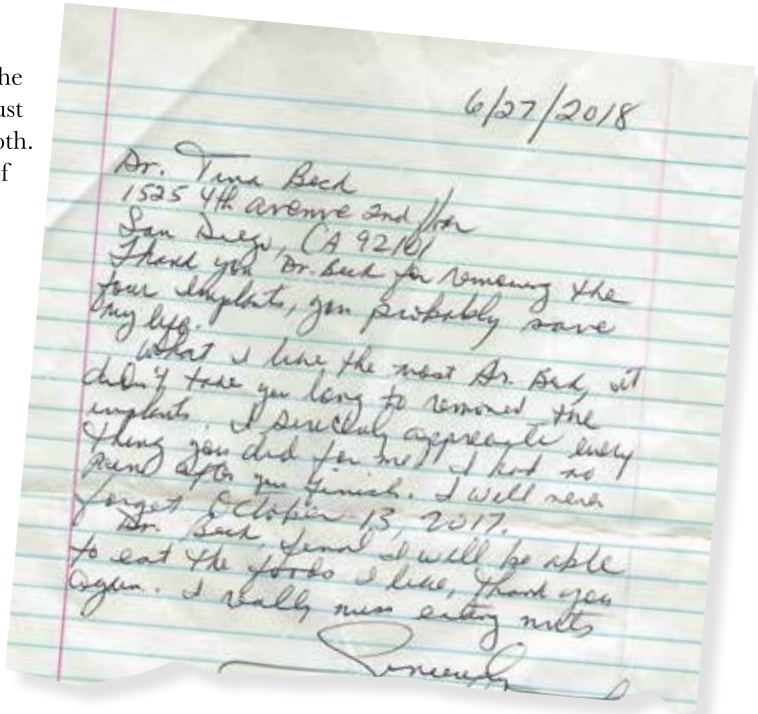 he
ust
oth.
f
6/27/2018
Dr. Tina Beck
1525 4th avenue 2nd floor
San Diego, CA 92101
Thank you Dr. Beck for removing the
four implants, you probably save
my life.
What I like the most Dr. Beck, it
didn't take you long to removed the
implants. I sincerely appreciate every
thing you did for me! I had no
pain after you finish. I will never
forget October 13, 2017.
Dr. Beck, I will be able
to eat the foods I like, thank you
again. I really miss eating nuts
Sincerely